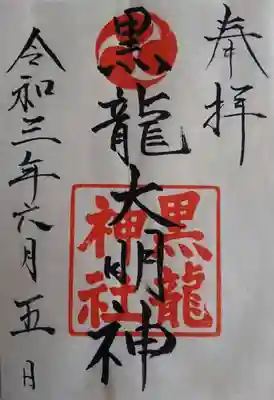 奉拝
黒龍大明神
黒龍神社
令和三年六月五日